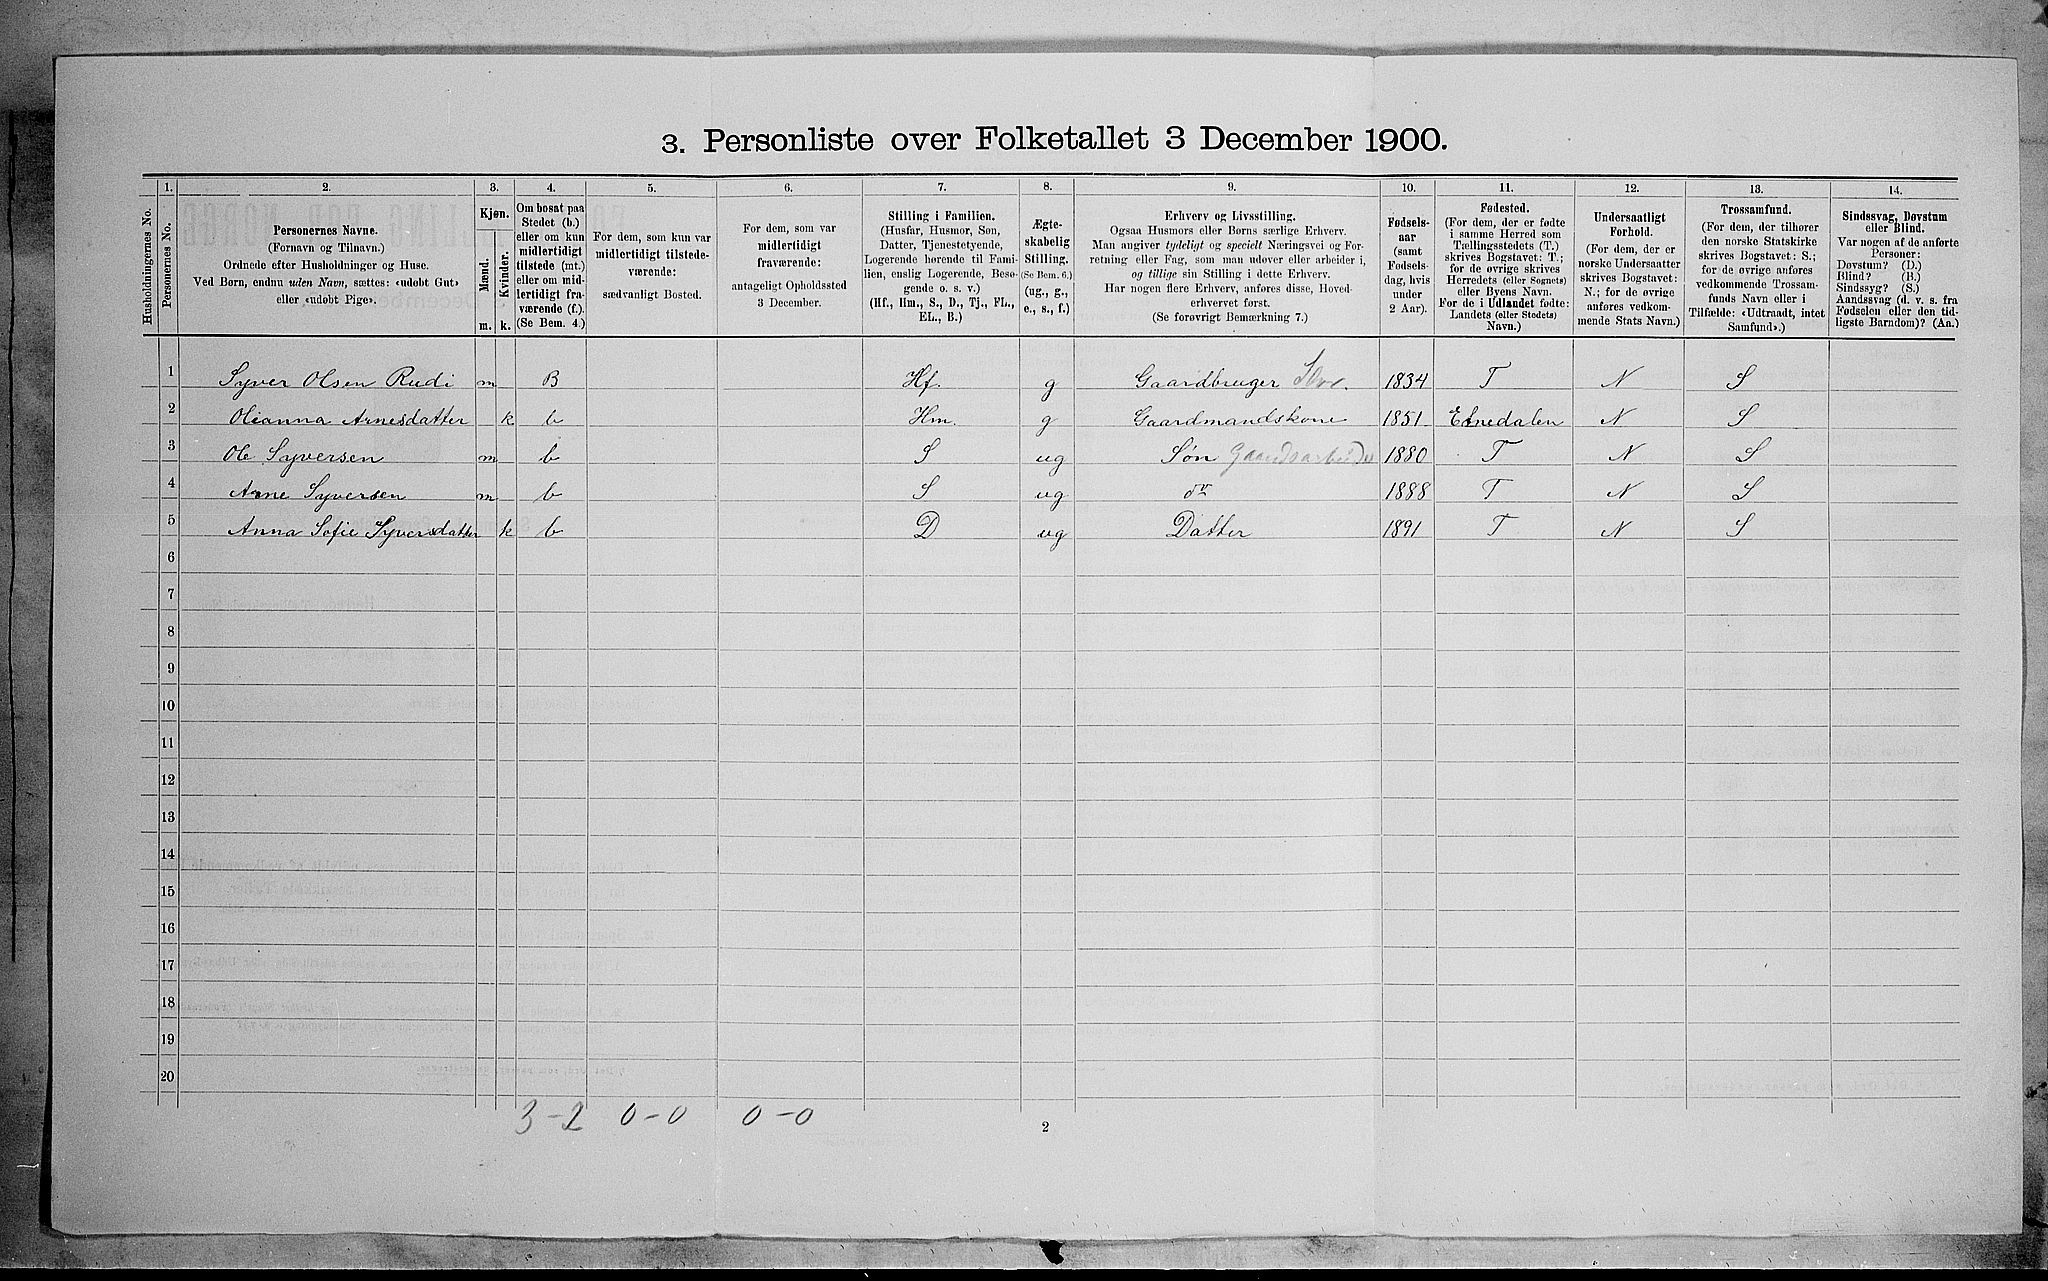 3. Personliste over Folketallet 3 December 1900.
Husholdningernes No.
1.
Personernes No.
2.
Personernes Navne.
(Fornavn og Tilnavn.)
Ordnede efter Husholdninger og Huse.
Ved Børn, endnu uden Navn, sættes: «udøbt Gut»
eller «udøbt Pige».
3.
Kjøn.
Mænd.
Kvinder.
m.
k.
4.
Om bosat paa
Stedet (b.)
eller om kun
midlertidigt
tilstede (mt.)
eller om mid-
lertidigt fra-
værende (f.)
(Se Bem. 4.)
5.
For dem, som kun var
midlertidigt tilstede-
værende:
sædvanligt Bosted.
6.
For dem, som var
midlertidigt
fraværende:
antageligt Opholdssted
3 December.
7.
Stilling i Familien.
(Husfar, Husmor, Søn,
Datter, Tjenestetyende,
Logerende hørende til Fami-
lien, enslig Logerende, Besø-
gende o. s. v.)
(Hf., Hm., S., D., Tj., FL.,
EL., B.)
8.
Ægte-
skabelig
Stilling.
(Se Bem. 6.)
(ug., g.,
e., s., f.)
9.
Erhverv og Livsstilling.
Ogsaa Husmors eller Børns særlige Erhverv.
Man angiver tydeligt og specielt Næringsvei og For-
retning eller Fag, som man udøver eller arbeider i,
og tillige sin Stilling i dette Erhverv.
Har nogen flere Erhverv, anføres disse, Hoved-
erhvervet først.
(Se forøvrigt Bemærkning 7.)
10.
Fødsels-
aar
(samt
Fødsels-
dag, hvis
under
2 Aar).
11.
Fødested.
(For dem, der er fødte
i samme Herred som
Tællingsstedets (T.)
skrives Bogstavet: T.;
for de øvrige skrives
Herredets (eller Sognets)
eller Byens Navn.
For de i Udlandet fødte:
Landets (eller Stedets)
Navn.)
12.
Undersaatligt
Forhold.
(For dem, der er
norske Undersaatter
skrives Bogstavet:
N.; for de øvrige
anføres vedkom-
mende Stats Navn.)
13.
Trossamfund.
(For dem, der tilhører
den norske Statskirke
skrives Bogstavet: S.;
for de øvrige anføres
vedkommende Trossam-
funds Navn eller i
Tilfælde: «Udtraadt, intet
Samfund».)
14.
Sindssvag, Døvstum
eller Blind.
Var nogen af de anførte
Personer:
Døvstum? (D.)
Blind? (B.)
Sindssyg? (S.)
Aandssvag (d. v. s. fra
Fødselen eller den tid-
ligste Barndom)? (Aa.)
1 Syver Olsen Rudi m B Hf. g Gaardbruger Selv. 1834 T N S
2 Olianna Arnesdatter k b Hm. g Gaardmandskone 1851. Etnedalen N S
3 Ole Syversen m b S ug Søn Gaardsarbeider 1880 T N S
4 Arne Syversen m b S ug do 1888 T N S
5 Anna Sofie Syversdatter k b D ug Datter 1891 T N S
6
7
8
9
10
11
12
13
14
15
16
17
18
19
20
3-2 0-0 0-0
2